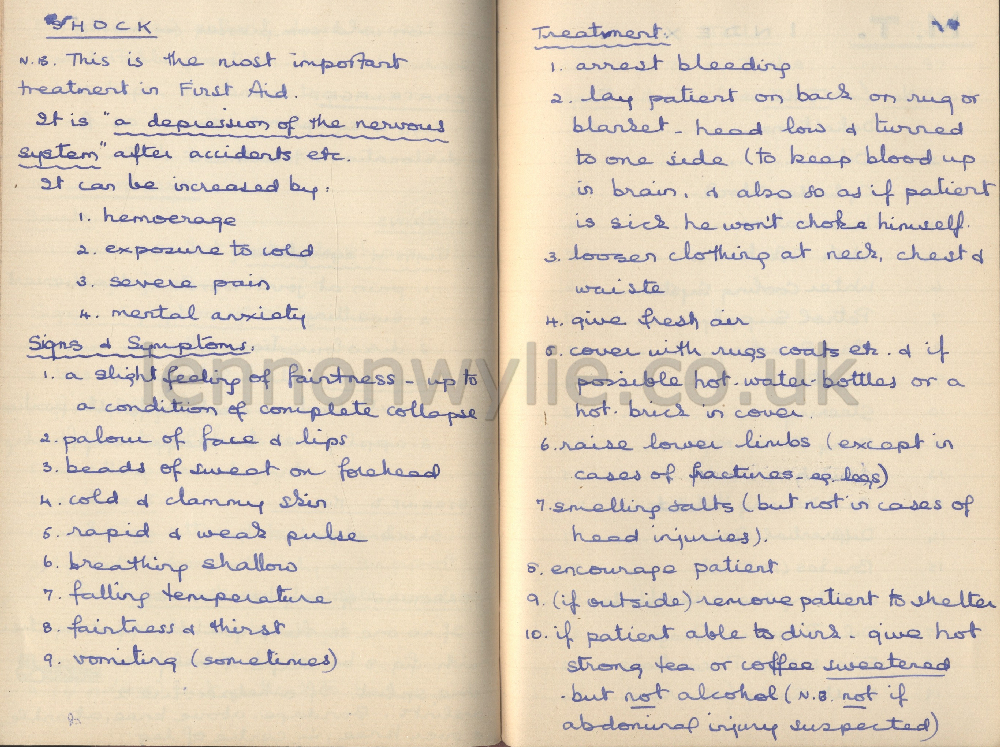 SHOCK
N.B. This is the most important
treatment in First Aid.
It is "a depression of the nervous
system" after accidents etc.
It can be increased by:
1. hemoerage
2. exposure to cold
3. severe pain
4. mental anxiety
Signs & Symptoms.
1. a slight feeling of faintness - up to
a condition of complete collapse
2. palour of face & lips
3. beads of sweat on forehead
4. cold & clammy skin
5. rapid & weak pulse
6. breathing shallow
7. falling temperature
8. faintness & thirst
9. vomiting (sometimes)
Treatment.
1. arrest bleeding
2. lay patient on back on rug or
blanket - head low & turned
to one side (to keep blood up
in brain, & also so as if patient
is sick he won't choke himself.
3. loosen clothing at neck, chest &
waiste
4. give fresh air
5. cover with rugs coats etc. & if
possible hot-water bottles or a
hot-brick in cover.
6. raise lower limbs (except in
cases of fractures - eg. legs)
7. smelling salts (but not in cases of
head injuries).
8. encourage patient
9. (if outside) remove patient to shelter
10. if patient able to drink - give hot
strong tea or coffee sweetened
- but not alcohol (N.B. not if
abdominal injury suspected)
lennonwylie.co.uk